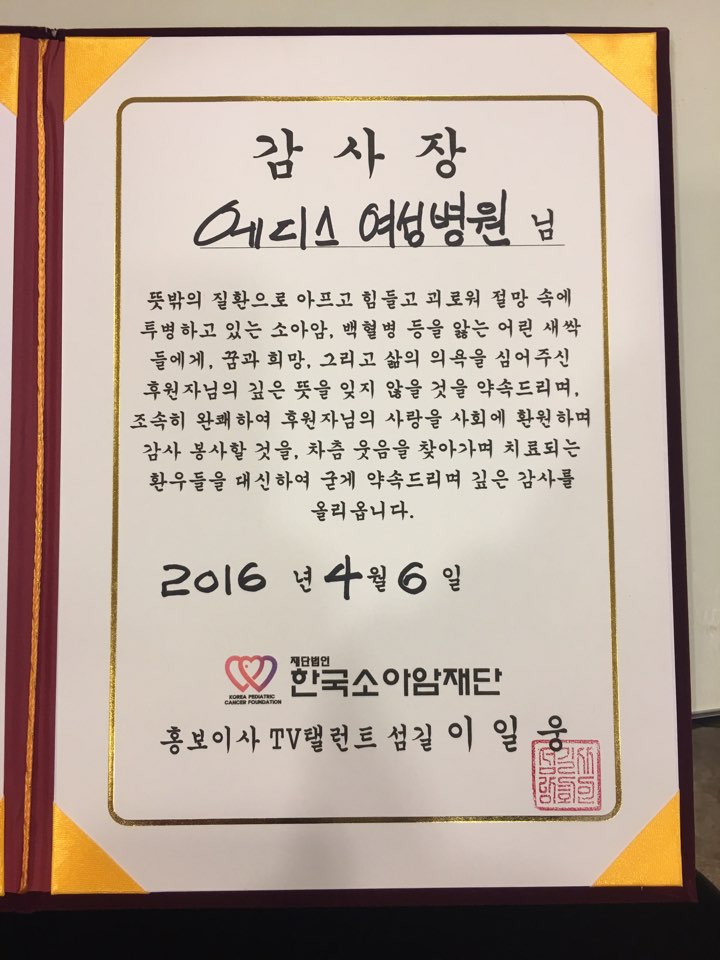 감사장
에디스 여성병원 님
뜻밖의 질환으로 아프고 힘들고 괴로워 절망 속에
투병하고 있는 소아암, 백혈병 등을 앓는 어린 새싹
들에게, 꿈과 희망, 그리고 삶의 의욕을 심어주신
후원자님의 깊은 뜻을 잊지 않을 것을 약속드리며,
조속히 완쾌하여 후원자님의 사랑을 사회에 환원하며
감사 봉사할 것을, 차츰 웃음을 찾아가며 치료되는
환우들을 대신하여 굳게 약속드리며 깊은 감사를
올리옵니다.
2016 년 4월 6 일
재단법인
한국소아암재단
KOREA PEDIATRIC
CANCER FOUNDATION
홍보이사 TV탤런트 섬길 이 일 웅